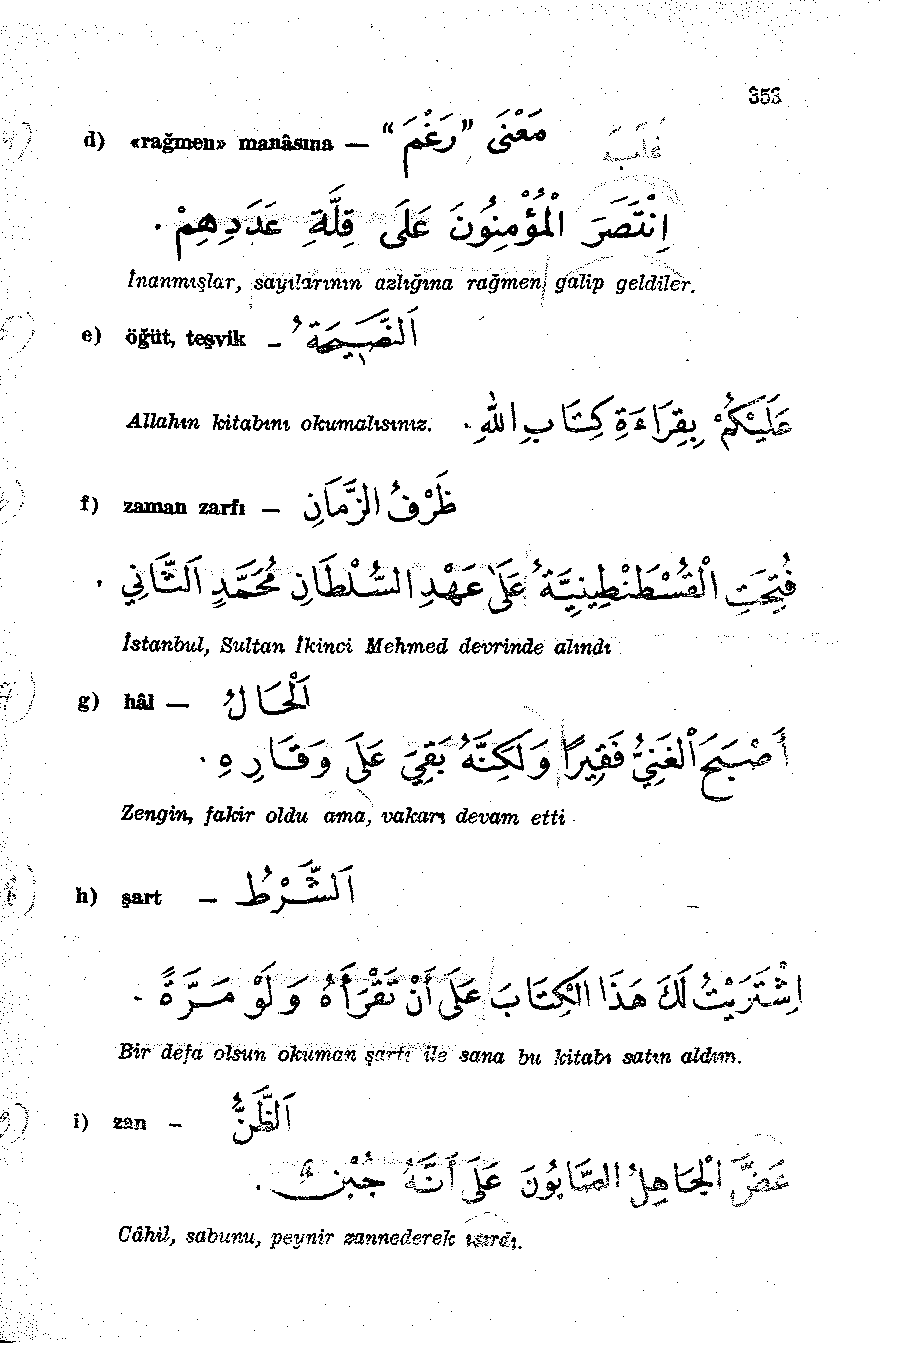 353
d) «rağmen» manâsına — مَعْنَى "رَغْمَ"
غلب
اِنْتَصَرَ الْمُؤْمِنُونَ عَلَى قِلَّةِ عَدَدِهِمْ .
İnanmışlar, sayılarının azlığına rağmen galip geldiler.
e) öğüt, teşvik – اَلنَّصِيحَةُ
Allahın kitabını okumalısınız. عَلَيْكُمْ بِقِرَاءَةِ كِتَابِ اللهِ .
f) zaman zarfı — ظَرْفُ الزَّمَانِ
فُتِحَتِ الْقُسْطَنْطِينِيَّةُ عَلَى عَهْدِ السُّلْطَانِ مُحَمَّدٍ الثَّانِي .
İstanbul, Sultan İkinci Mehmed devrinde alındı
g) hâl — اَلْحَالُ
أَصْبَحَ الْغَنِيُّ فَقِيرًا وَلَكِنَّهُ بَقِيَ عَلَى وَقَارِهِ .
Zengin, fakir oldu ama, vakarı devam etti
h) şart – اَلشَّرْطُ
اِشْتَرَيْتُ لَكَ هَذَا الْكِتَابَ عَلَى أَنْ تَقْرَأَهُ وَلَوْ مَرَّةً .
Bir defa olsun okuman şartı ile sana bu kitabı satın aldım.
i) zan – اَلظَّنُّ
عَضَّ الْجَاهِلُ الصَّابُونَ عَلَى أَنَّهُ جُبْنٌ .
Câhil, sabunu, peynir zannederek ısırdı.